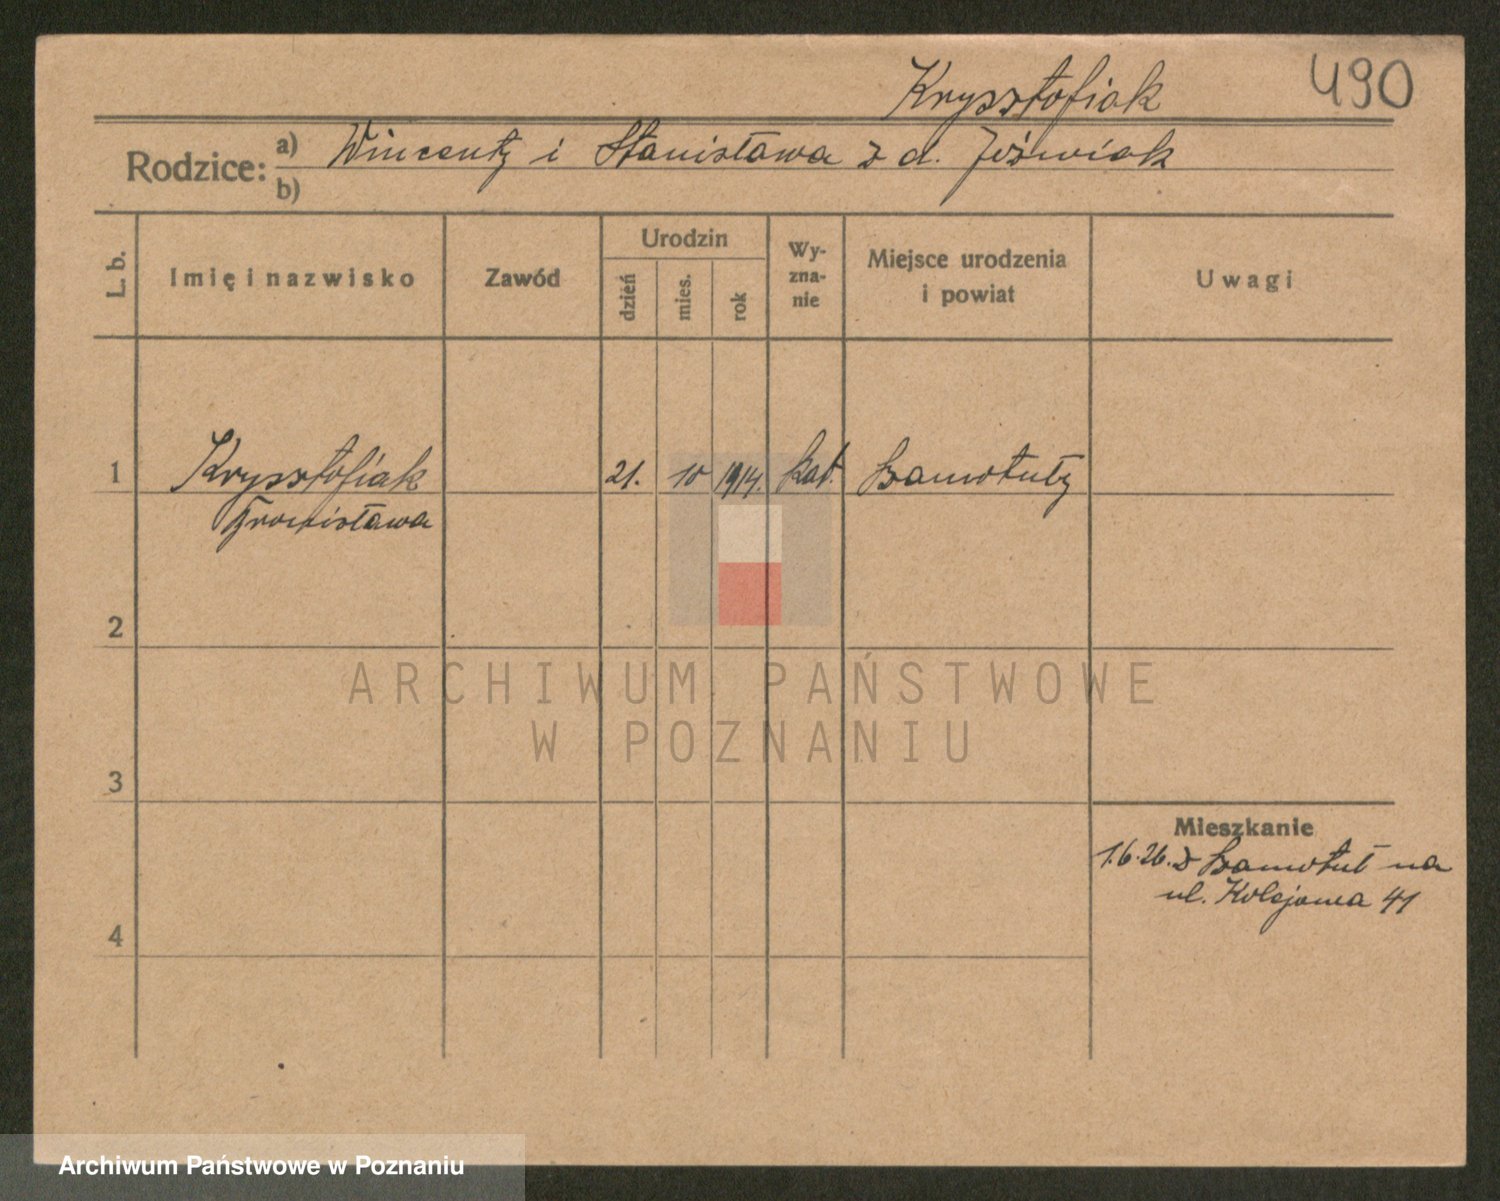 Krysztofiak
490
Rodzice:
a) Wincenty i Stanisława z d. Jóźwiak
b)
L. b.
Imię i nazwisko
Zawód
Urodzin
dzień
mies.
rok
Wy-
zna-
nie
Miejsce urodzenia
i powiat
Uwagi
1 Krysztofiak 21. 10 1914. kat. Szamotuły
Bronisława
2
ARCHIWUM PAŃSTWOWE
W POZNANIU
3
Mieszkanie
1.6.26. z Szamotuł na
ul. Kolejowa 41
4
Archiwum Państwowe w Poznaniu